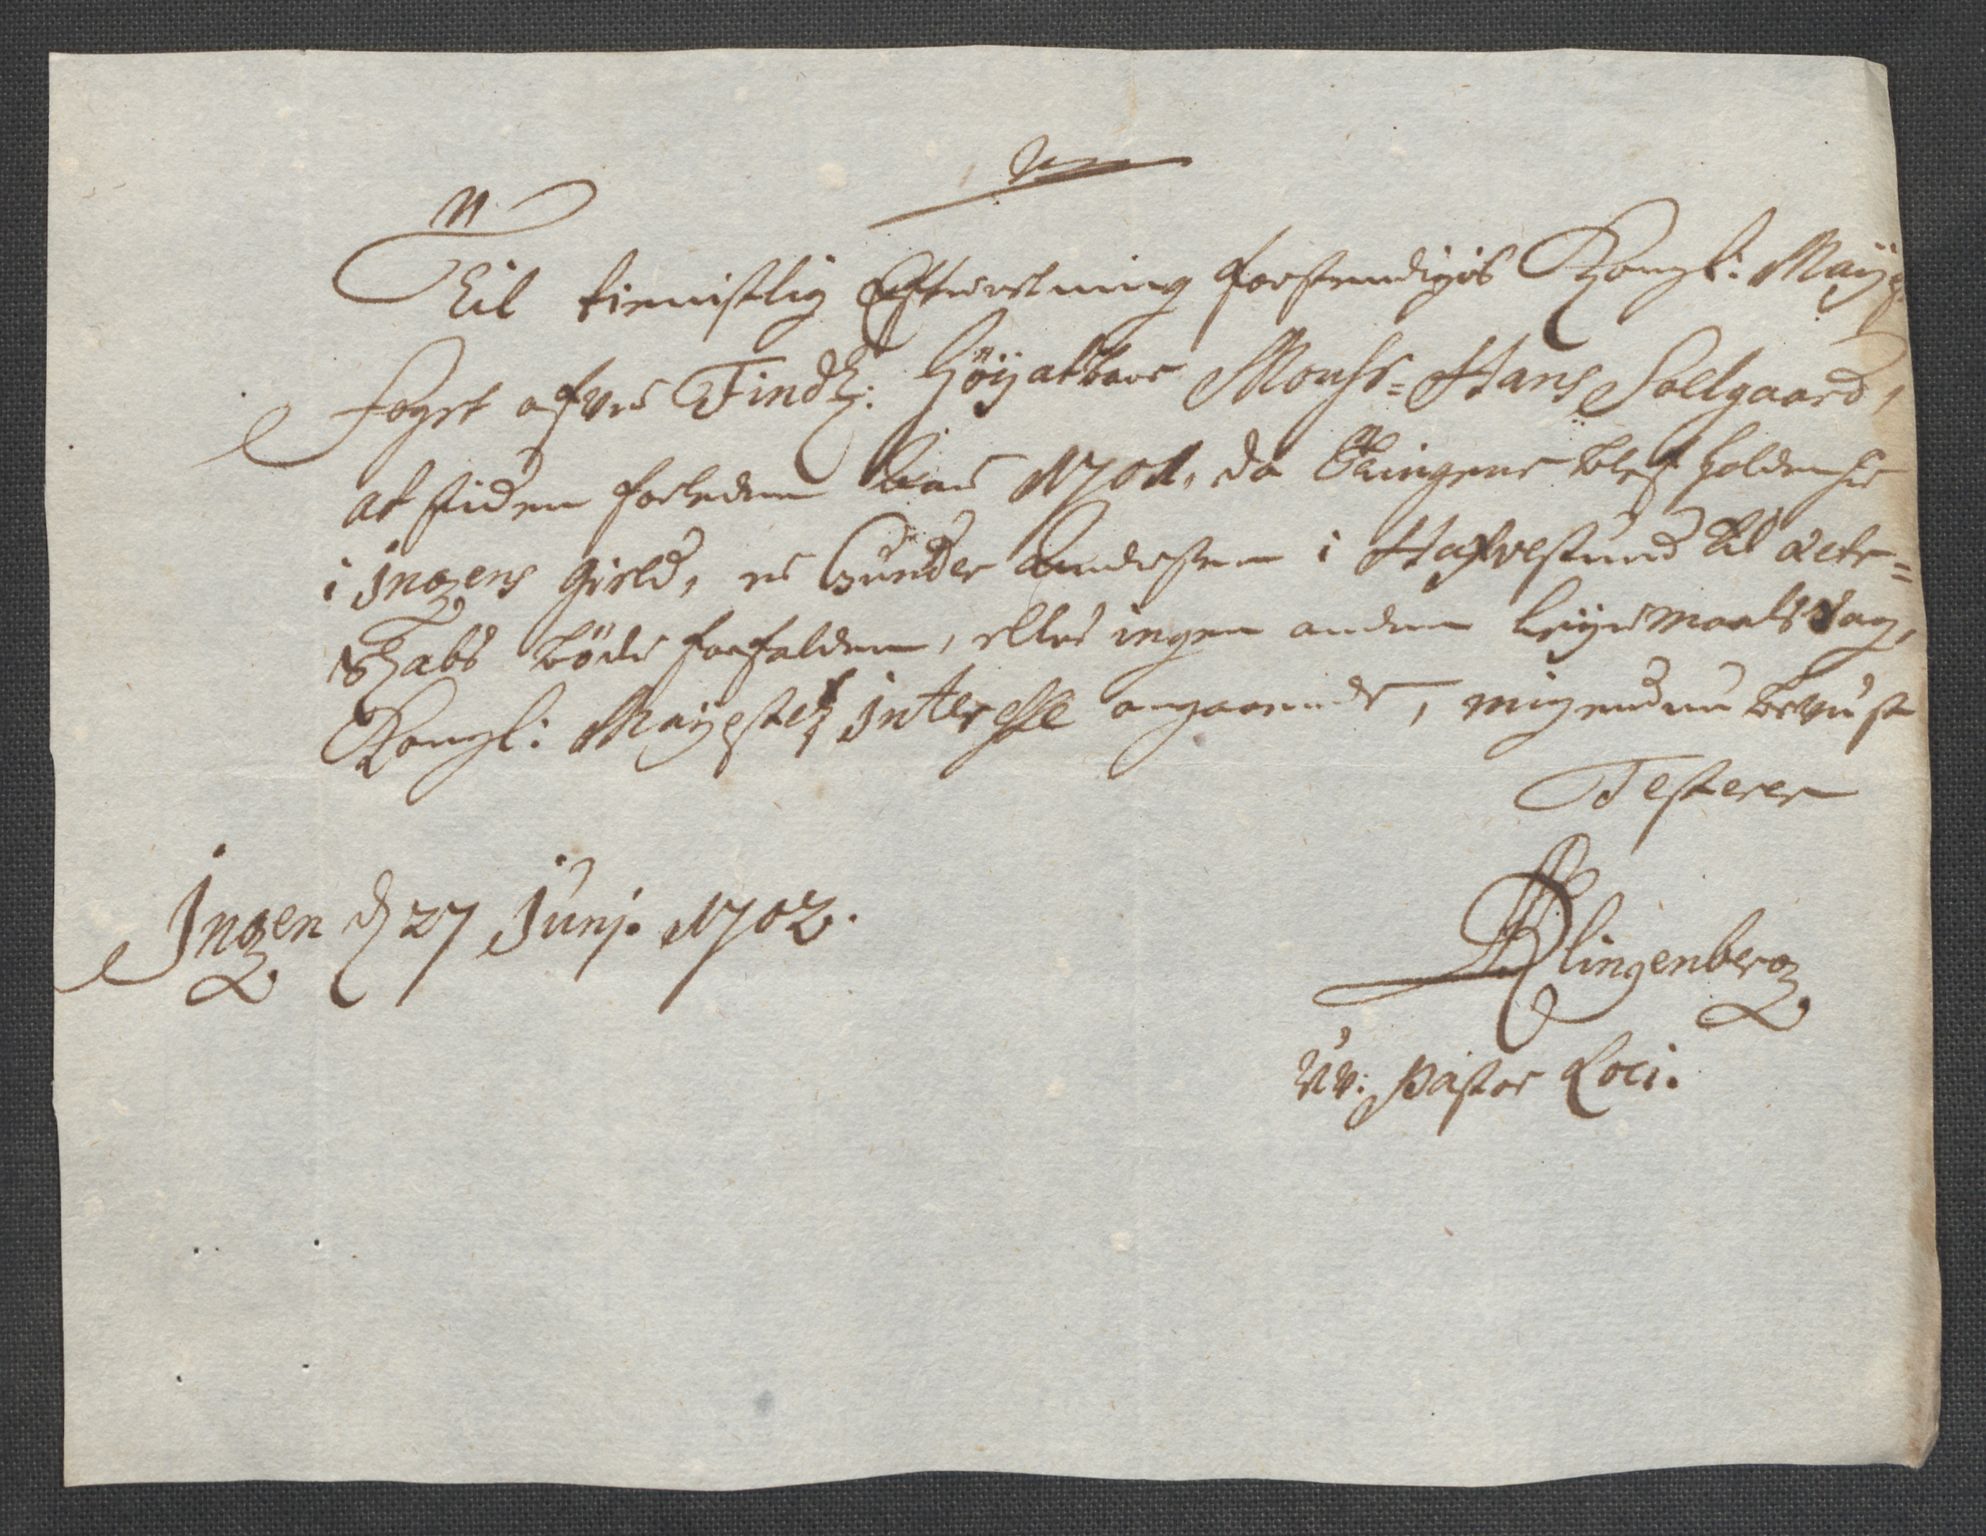 Til tienistlig Efterretning forstendigis Kongl: Mayts:
Fogst ofver Findk: Höyactbare Monsr= Hans Solgaard,
at siden forleden Aar 1701, da Tingene blef holden her
i Ingens Gield, er Gunder Andersen i Hafvesund til ächte=
skabs böder forfalden, ellers ingen anden Leyermaals Sag,
Kongl: Mayestetz Interesse angaaende, mig endnu bevust
Testerer
Ingen d 27 Junj. 1702.
Klingenberg
Vv. Pastor Loci.